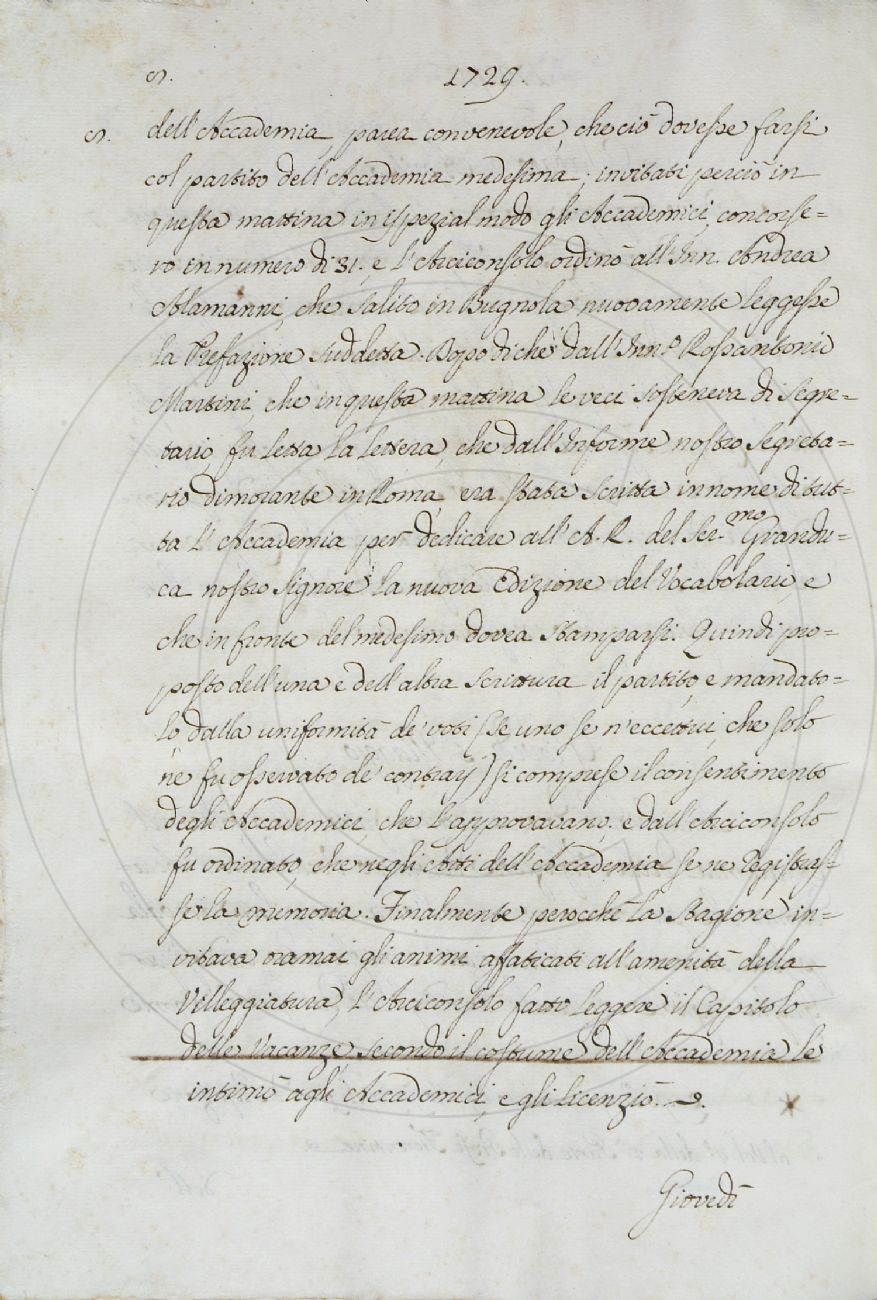 S. 1729.
S. dell'Accademia, parea convenevole, che ciò dovesse farsi
col partito dell'Accademia medesima; invitati perciò in
questa mattina in ispezial modo gli Accademici, concorse=
ro in numero di 31. e l'Arciconsolo ordinò all'Inn. Andrea
Alamanni, che salito in Bugnola nuovamente leggesse
la Prefazione suddetta. Dopo di che dall'Inn.o Rossantonio
Martini, che in questa mattina le veci sosteneva di Segre=
tario, fu letta la lettera, che dall'Informe nostro Segreta=
rio dimorante in Roma, era stata scritta in nome di tut=
ta l'Accademia per dedicare all'A. R. del Ser.mo Grandu=
ca nostro Signore la nuova Edizione del Vocabolario, e
che in fronte del medesimo dovea stamparsi. Quindi pro=
posto dell'una e dell'altra scrittura il partito, e mandato=
lo dalla uniformità de' voti (se uno se n'eccettui, che solo
ne fu osservato de' contrarj) si comprese il consentimento
degli Accademici, che l'approvavano. e dall'Arciconsolo
fu ordinato, che negli Atti dell'Accademia se ne registras=
se la memoria. Finalmente perocchè la Stagione in=
vitava oramai gli animi affaticati all'amenità della
Villeggiatura, l'Arciconsolo fatto leggere il Capitolo
delle Vacanze, secondo il costume dell'Accademia le
intimò agli Accademici, e gli licenziò.
Giovedì